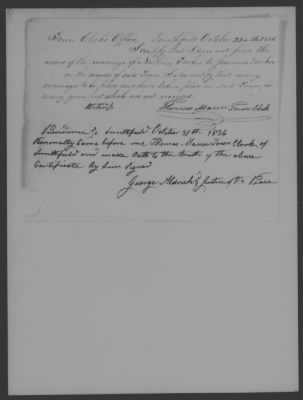 Town Clerks Office Smithfield October 22d 1836
I certify that I can not find the
record of the marriage of
in the records of said Town. I also certify that many
marriages take place and have taken place in said Town, so
many years, not which are not recorded
Witness Thomas Mann Town Clerk
Providence Ss Smithfield October 27th 1836
Personally came before me Thomas Mann Town Clerk of
Smithfield and made Oath to the truth of the above
Certificate by him Signed
George Aldrich Justice of the Peace